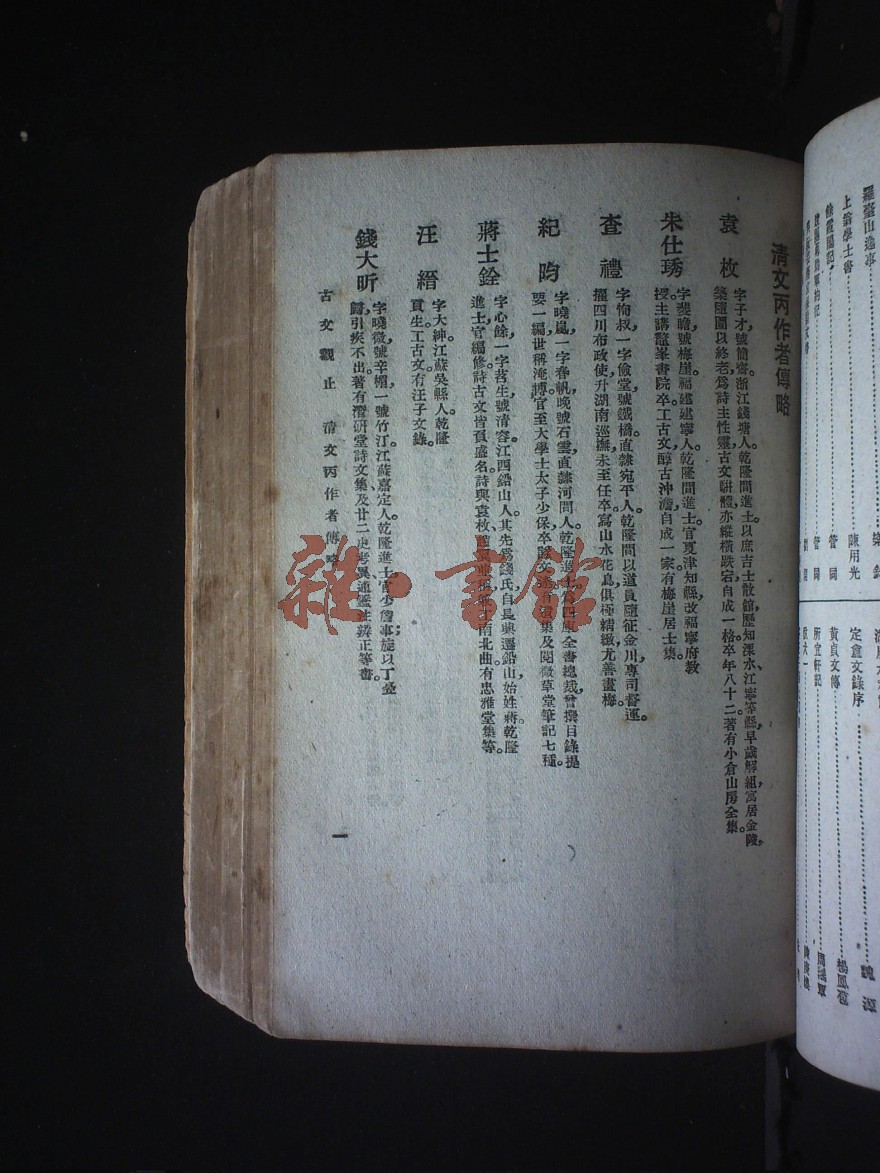 清文丙作者傳略
袁枚
字子才，號簡齋，浙江錢塘人。乾隆間進士以庶吉士散館，歷知溧水、江寧等縣，早歲解組，寓居金陵，
築隨園以終老。爲詩主性靈古文駢體，亦縱橫跌宕，自成一格。卒年八十二著有小倉山房全集。
朱仕琇
字斐瞻，號梅崖福建建寧人。乾隆間進士官夏津知縣改福寧府教
授。主講鼇峯書院卒工古文，醇古沖澹自成一家有梅崖居士集。
查禮
字恂叔，一字儉堂，號鐵橋，直隸宛平人。乾隆間以道員隨征金川專司督運。
擢四川布政使，升湖南巡撫，未至任卒。寫山水花鳥，俱極精緻，尤善畫梅。
紀昀
字曉嵐，一字春帆，晚號石雲，直隸河間人。乾隆進士。爲四庫全書總裁，曾撰目錄提
要一編，世稱淹博。官至大學士太子少保，卒諡文達。集及閱微草堂筆記七種。
蔣士銓
字心餘，一字苕生，號清容。江西鉛山人。其先爲錢氏自長興遷鉛山始姓蔣，乾隆
進士官編修，詩古文皆負盛名詩與袁枚南北曲。有忠雅堂集等。
汪縉
字大紳，江蘇吳縣人。乾隆
貢生。工古文。有汪子文錄。
錢大昕
字曉徵，號辛楣，一號竹汀，江蘇嘉定人，乾隆進士，官少詹事，旋以丁憂
歸，引疾不出。著有潛研堂詩文集及廿二史考異、通鑑注辨正等書。
古文觀止 清文丙作者傳略
一
雜·書館
羅臺山逸事
上翁學士書 陳用光
管同
管同
魏源
定盦文錄序
黃貞文傳 楊鳳苞
所宜軒記